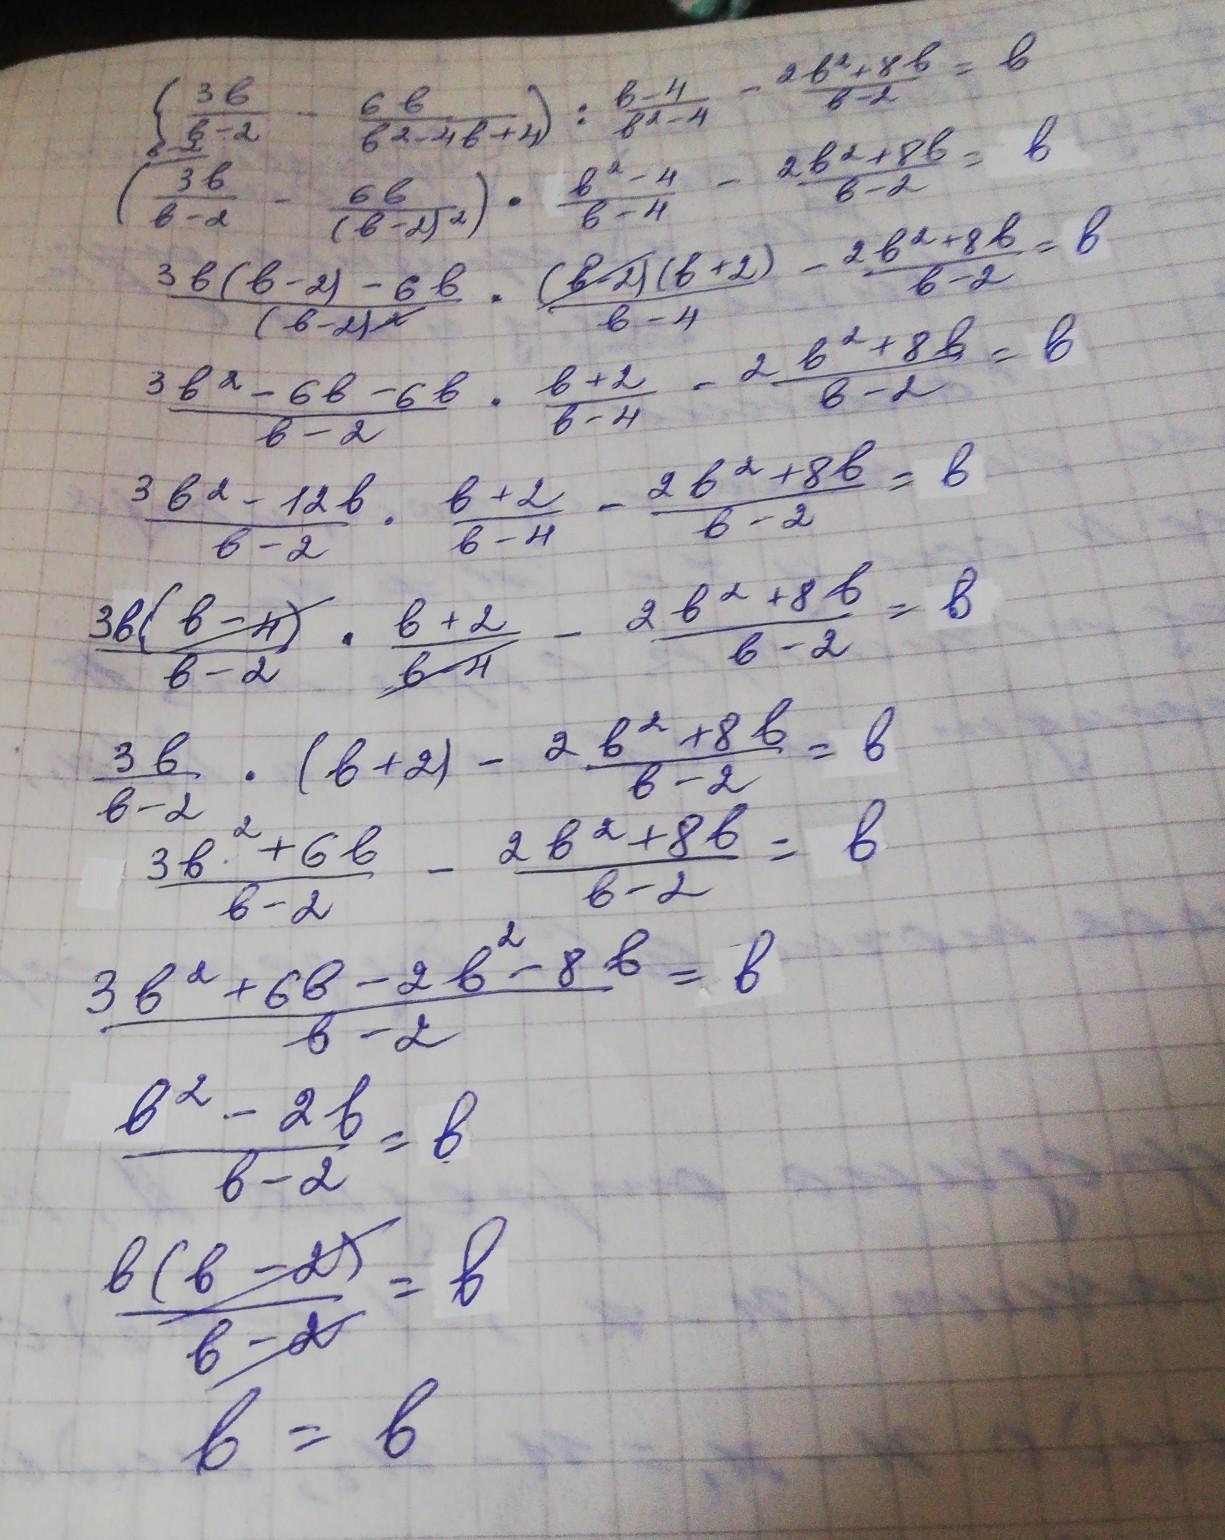 (3b/(b-2) - 6b/(b²-4b+4)) : (b-4)/(b²-4) - (2b²+8b)/(b-2) = b
(3b/(b-2) - 6b/(b-2)²) · (b²-4)/(b-4) - (2b²+8b)/(b-2) = b
(3b(b-2)-6b)/(b-2)² · ((b-2)(b+2))/(b-4) - (2b²+8b)/(b-2) = b
(3b²-6b-6b)/(b-2) · (b+2)/(b-4) - (2b²+8b)/(b-2) = b
(3b²-12b)/(b-2) · (b+2)/(b-4) - (2b²+8b)/(b-2) = b
3b(b-4)/(b-2) · (b+2)/(b-4) - (2b²+8b)/(b-2) = b
3b/(b-2) · (b+2) - (2b²+8b)/(b-2) = b
(3b²+6b)/(b-2) - (2b²+8b)/(b-2) = b
(3b²+6b-2b²-8b)/(b-2) = b
(b²-2b)/(b-2) = b
b(b-2)/(b-2) = b
b = b